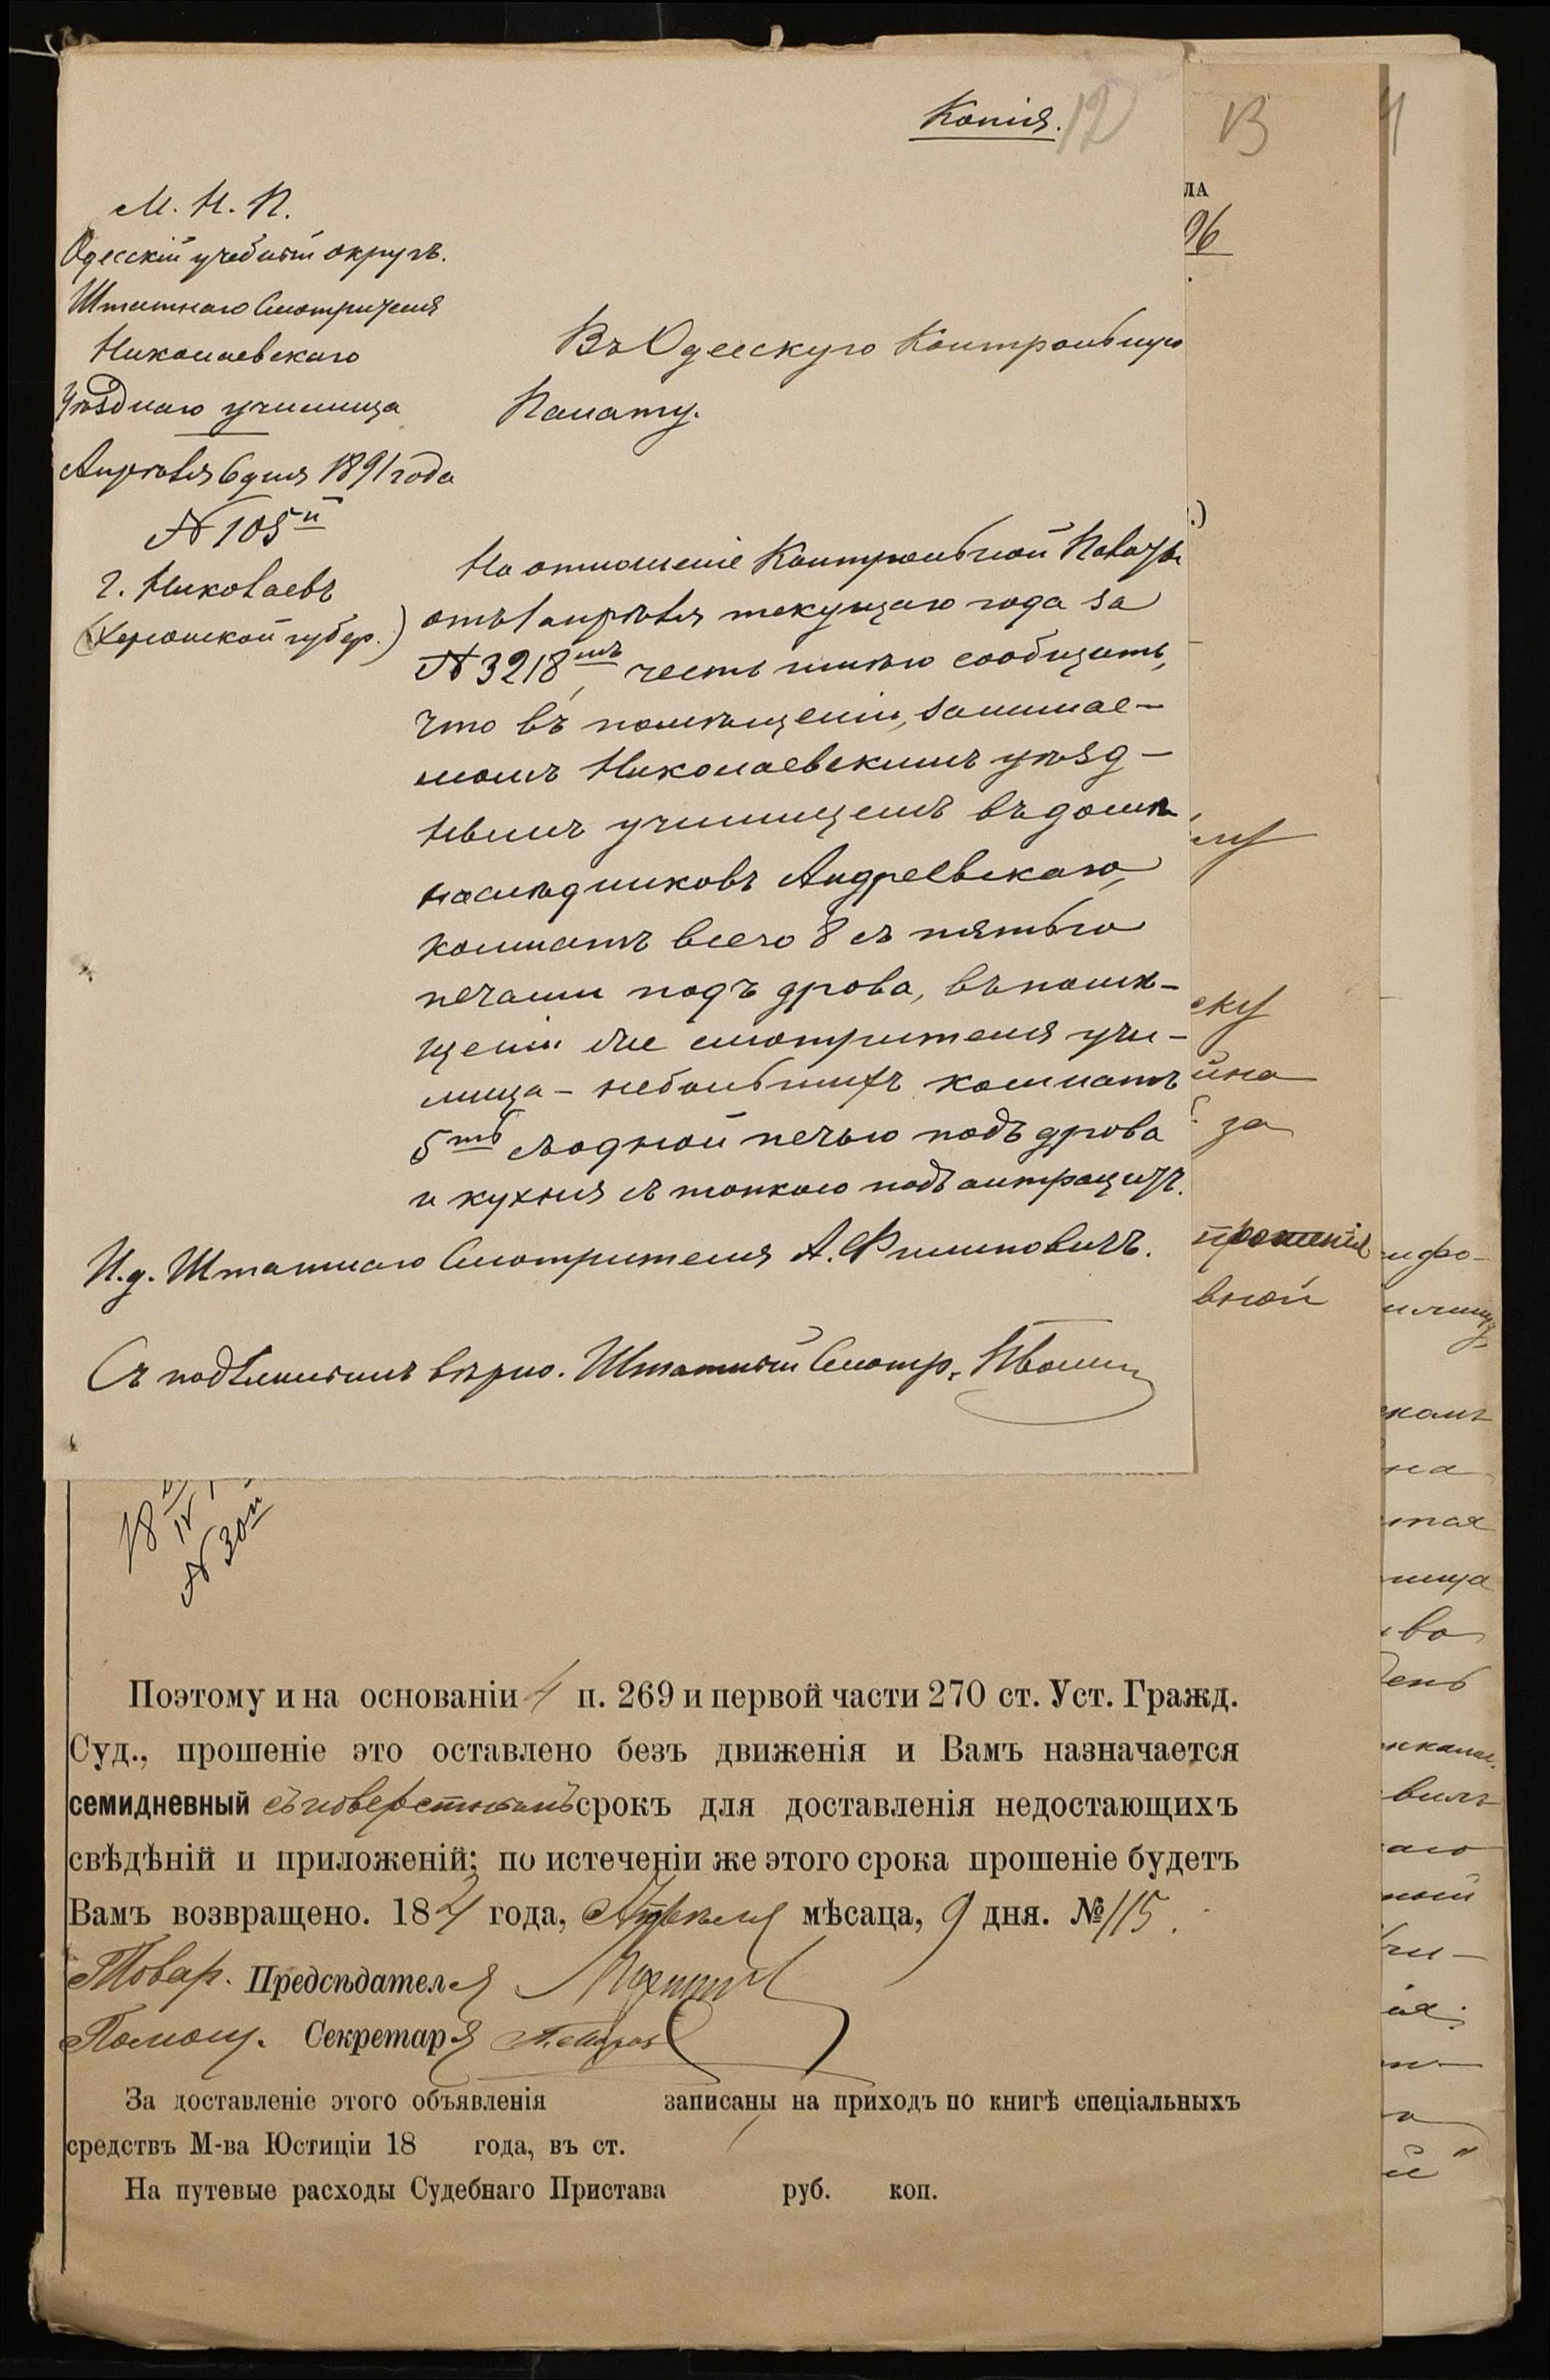 Копія.
12
М. Н. П.
Одесскій учебный округъ.
Штатнаго Смотрителя
Николаевскаго
Уѣзднаго училища
Апрѣля 6 дня 1891 года
№ 105й
г. Николаевъ
(Херсонской губер.)
Въ Одесскую Контрольную
Палату.
На отношеніе Контрольной Палаты
отъ 1 апрѣля текущаго года за
№ 3218мъ, честь имѣю сообщить,
что въ помѣщеніи, занимае-
момъ Николаевскимъ уѣзд-
нымъ училищемъ въ домѣ
наслѣдниковъ Андреевскаго,
комнатъ всего 8 съ пятью
печами подъ дрова, въ помѣ-
щеніи же смотрителя учи-
лища – небольшихъ комнатъ
5ть съ одной печью подъ дрова
и кухня съ топкою подъ антрацитъ.
И. д. Штатнаго Смотрителя А. Филиповичъ.
Съ подлиннымъ вѣрно. Штатный Смотр.
13
ЛА
96
еку
йна
за
прошенія
вной
18
IV
№ 30й
Поэтому и на основаніи 4 п. 269 и первой части 270 ст. Уст. Гражд.
Суд., прошеніе это оставлено безъ движенія и Вамъ назначается
семидневный съ поверстнымъ срокъ для доставленія недостающихъ
свѣдѣній и приложеній; по истеченіи же этого срока прошеніе будетъ
Вамъ возвращено. 1891 года, Апрѣля мѣсаца, 9 дня. № 115.
Товар. Предсѣдателя
Помощ. Секретаря
За доставленіе этого объявленія записаны на приходъ по книгѣ спеціальныхъ
средствъ М-ва Юстиціи 18 года, въ ст.
На путевые расходы Судебнаго Пристава руб. коп.